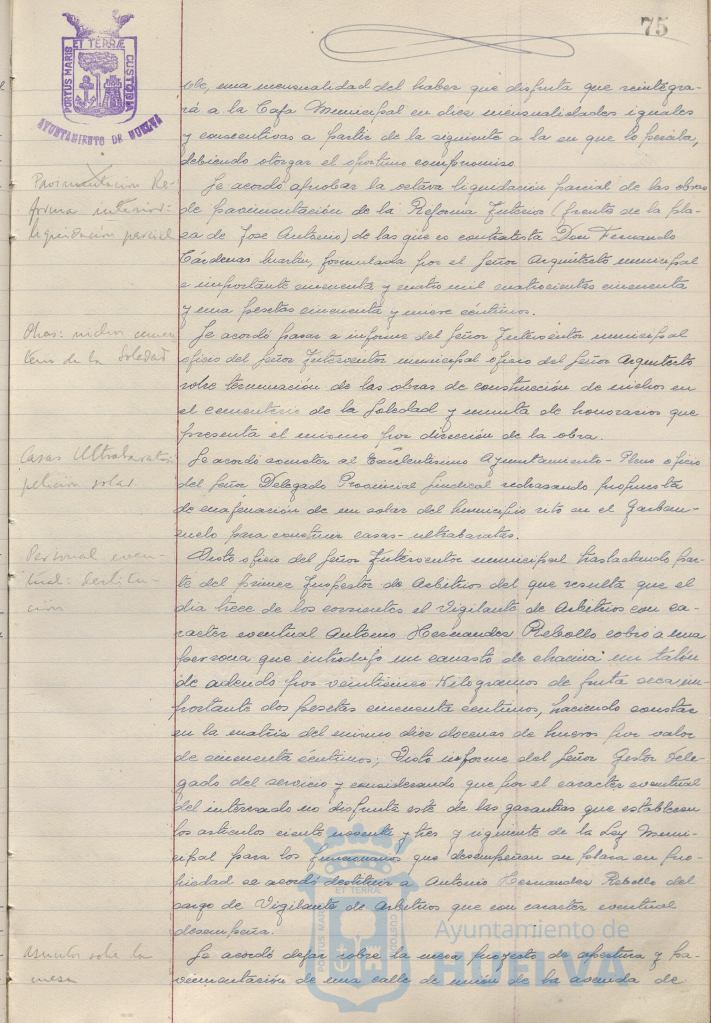 75
PORTUS MARIS ET TERRÆ CUSTODIA
AYUNTAMIENTO DE HUELVA
una mensualidad del haber que disfruta que reintegra-
rá a la Caja Municipal en diez mensualidades iguales
y consecutivas a partir de la siguiente a la en que lo perciba,
debiendo otorgar el oportuno compromiso
Pavimentacion Re-
forma interior:
liquidación parcial
Se acordó aprobar la octava liquidación parcial de las obras
de pavimentación de la Reforma Interior (frente de la pla-
za de Jose Antonio) de las que es contratista Don Fernando
Cárdenas Martin, formulada por el Señor Arquitecto municipal
e importante cincuenta y cuatro mil cuatrocientas cincuenta
y una pesetas cincuenta y nueve céntimos.
Obras: nichos cemen
terio de la Soledad
Se acordó pasar a informe del Señor Interventor municipal
oficio del Señor Interventor municipal oficio del Señor Arquitecto
sobre terminación de las obras de construcción de nichos en
el cementerio de la Soledad y minuta de honorarios que
presenta el mismo por dirección de la obra.
Casas Ultrabaratas:
petición solar
Se acordó someter al Excelentísimo Ayuntamiento-Pleno oficio
del Señor Delegado Provincial Sindical rechazando propuesta
de enajenación de un solar del municipio sito en el
para construir casas-ultrabaratas.
Personal even-
tual: Destitu-
ción
Visto oficio del Señor Interventor municipal trasladando par-
te del primer Inspector de Arbitrios del que resulta que el
dia trece de los corrientes el Vigilante de Arbitrios con ca-
racter eventual Antonio Hernandez Rebollo cobró a una
persona que introdujo un canasto de chacina un talón
de adeudo por veinticinco Kilogramos de fruta seca im-
portante dos pesetas cincuenta centimos, haciendo constar
en la matriz del mismo diez docenas de huevos por valor
de cincuenta céntimos; Visto informe del Señor Gestor Dele-
gado del servicio y considerando que por el caracter eventual
del interesado no disfruta este de las garantias que establecen
los articulos ciento noventa y tres y siguiente de la Ley Muni-
cipal para los funcionarios que desempeñan su plaza en pro-
piedad se acordó destituir a Antonio Hernandez Rebollo del
cargo de Vigilante de Arbitrios que con caracter eventual
desempeña.
Asuntos sobre la
mesa
Se acordó dejar sobre la mesa proyecto de apertura y pa-
vimentación de una calle de unión de la avenida de
PORTUS MARIS ET TERRÆ CUSTODIA
Ayuntamiento de
HUELVA